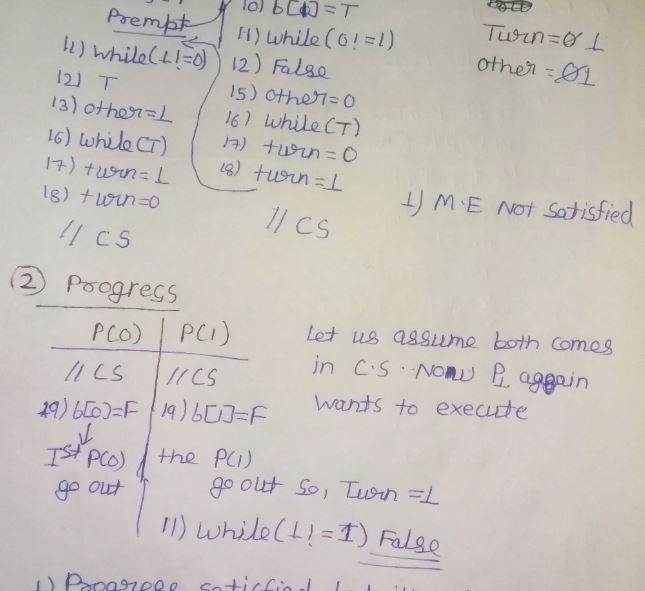 10) b[1]=T
Prempt
11) while(0!=1)
Turn=0 1
11) while(1!=0)
12) False
other=01
12) T
15) other=0
13) other=1
16) while(T)
16) while(T)
17) turn=0
17) turn=1
18) turn=1
18) turn=0
1) M.E Not Satisfied
// CS
// CS
2 Progress
P(0) P(1)
Let us assume both comes
// CS // CS
in C.S. Now P1 again
19) b[0]=F 19) b[1]=F
wants to execute
Ist P(0) the P(1)
go out
go out so, Turn =1
11) while(1!=1) False
1) Progress satisfied